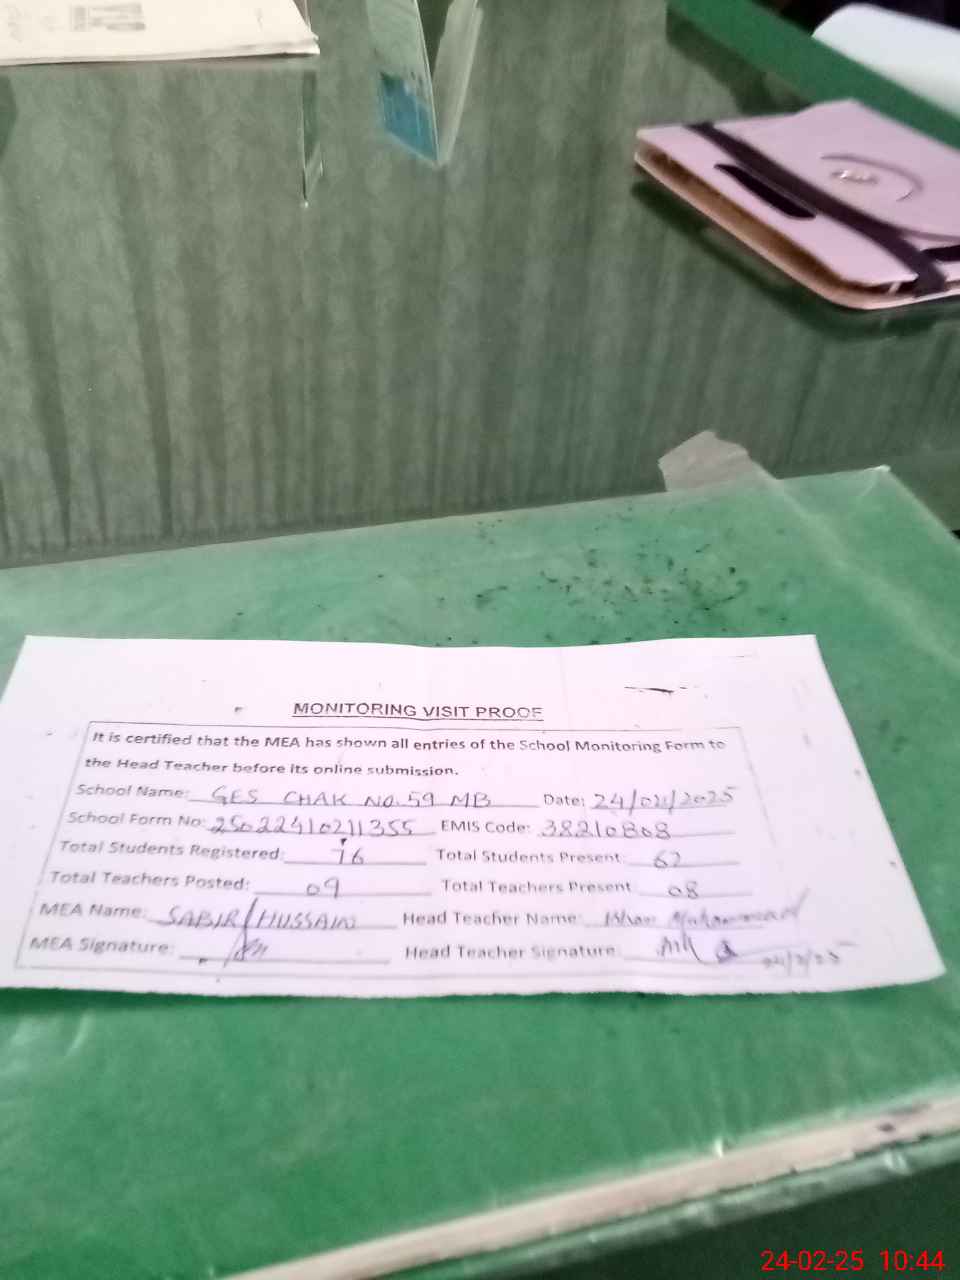 MONITORING VISIT PROOF
It is certified that the MEA has shown all entries of the School Monitoring Form to
the Head Teacher before its online submission.
School Name: GES CHAK NO. 59 MB Date: 24/02/2025
School Form No: 25022410211355 EMIS Code: 38210808
Total Students Registered: 76 Total Students Present 62
Total Teachers Posted: 09 Total Teachers Present 08
MEA Name: SABIR HUSSAIN Head Teacher Name: Muhammad
MEA Signature: Head Teacher Signature: 24/2/25
24-02-25 10:44